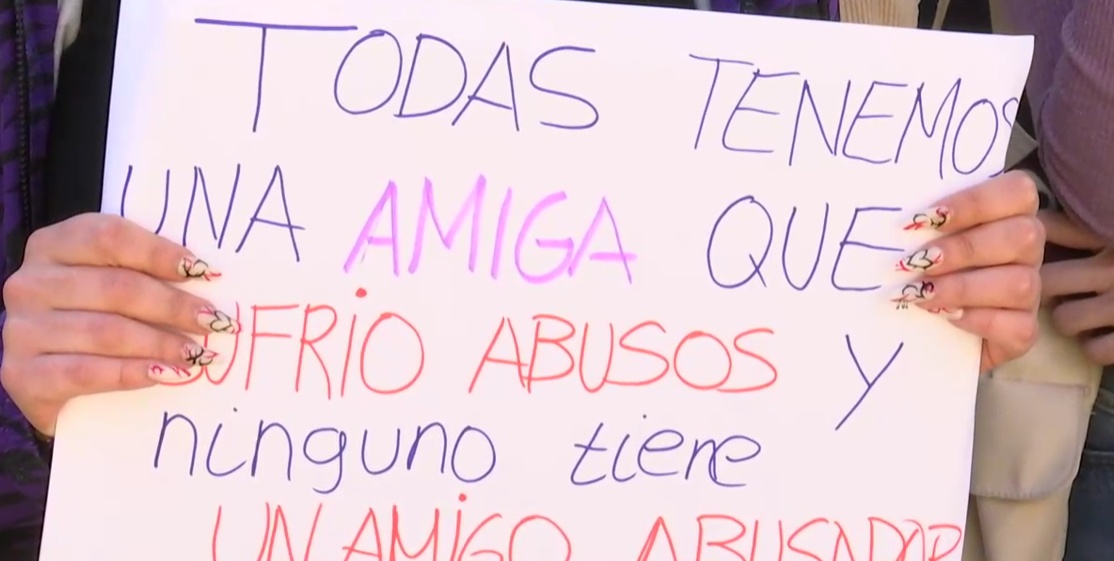 TODAS TENEMOS
UNA AMIGA QUE
SUFRIO ABUSOS Y
ninguno tiene
UN AMIGO ABUSADOR